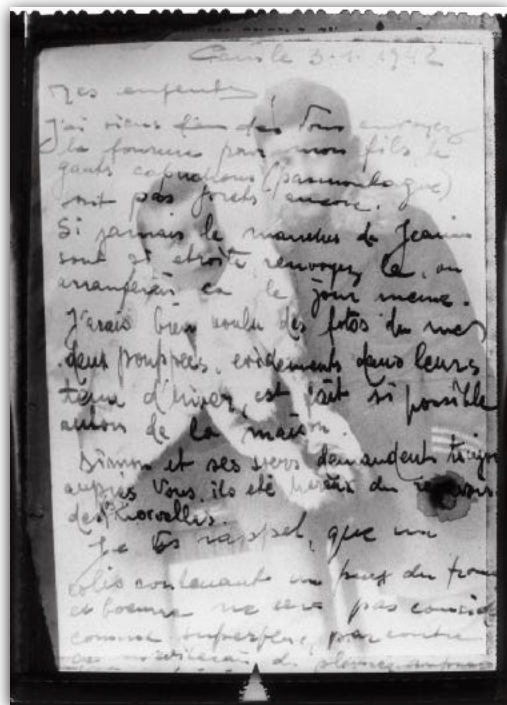 3.1.1942
Mes enfents
J'ai Vous envoyez
la fourrure pour mon fils, le
gants capuchons (passmontagne)
sont pas forets encore.
Si jamais le manches de Jeanin
sont si etroite renvoyez la, on
arrangerais ça le jour meme.
J'erais bien voulu des fotos du mes
deux pouppées, evidements dans leurs
tenu d'hiver, est fait si possible
autour de la maison.
Simon et ses sers demandent
auprès Vous, ils eté du
des Nouvelles.
Je Vs rappel, que un
colis contenants un peux du
et ne sera pas
comme superflus, par contre